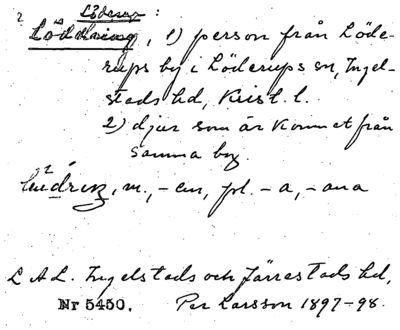 2 Löderup:
Löddring, 1) person från Löde-
rups by i Löderups sn, Ingel-
stads hd, Krist. l.
2) djur som är kommet från
samma by.
m., -en, pl. -a, -ana
L A L. Ingelstads och Järrestads hd,
Nr 5450. Per Larsson 1897-98.